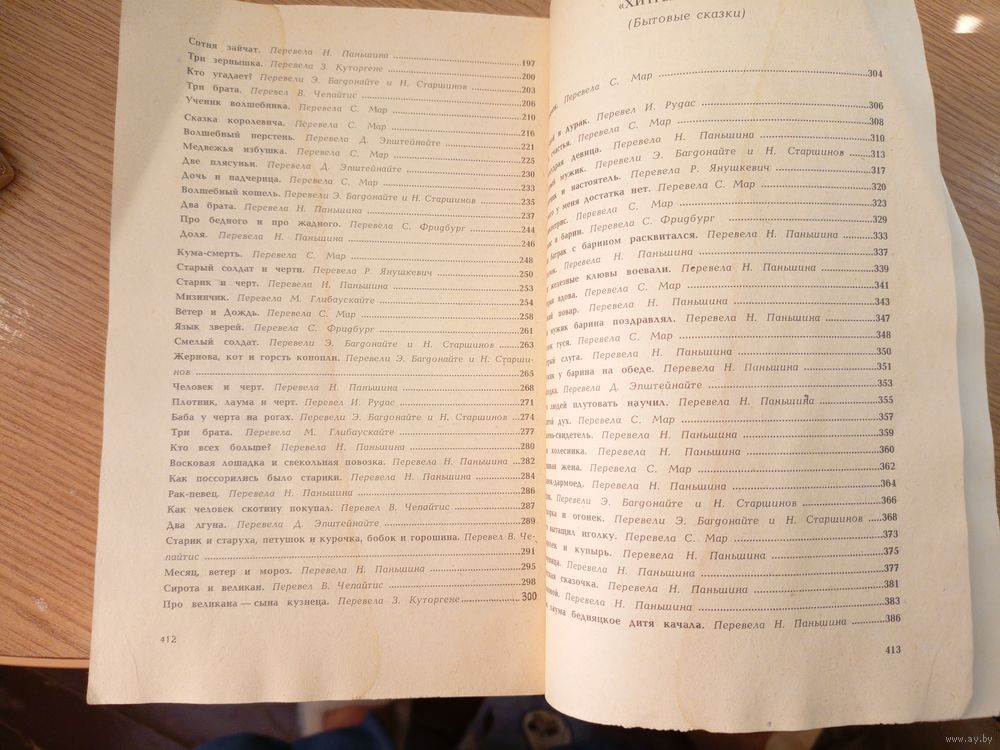 Сотня зайчат. Перевела Н. Паньшина 197
Три зернышка. Перевела З. Куторгене 200
Кто угадает? Перевели Э. Багдонайте и Н. Старшинов 203
Три брата. Перевел В. Чепайтис 206
Ученик волшебника. Перевела С. Мар 210
Сказка королевича. Перевела С. Мар 216
Волшебный перстень. Перевела Д. Эпштейнайте 221
Медвежья избушка. Перевела С. Мар 225
Две плясуньи. Перевела Д. Эпштейнайте 230
Дочь и падчерица. Перевела С. Мар 233
Волшебный кошель. Перевели Э. Багдонайте и Н. Старшинов 235
Два брата. Перевела Н. Паньшина 237
Про бедного и про жадного. Перевела С. Фридбург 244
Доля. Перевела Н. Паньшина 246
Кума-смерть. Перевела С. Мар 248
Старый солдат и черти. Перевела Р. Янушкевич 250
Старик и черт. Перевела Н. Паньшина 253
Мизинчик. Перевела М. Глибаускайте 254
Ветер и Дождь. Перевела С. Мар 258
Язык зверей. Перевела С. Фридбург 261
Смелый солдат. Перевели Э. Багдонайте и Н. Старшинов 263
Жернова, кот и горсть конопли. Перевели Э. Багдонайте и Н. Старши-
нов 265
Человек и черт. Перевела Н. Паньшина 268
Плотник, лаума и черт. Перевел И. Рудас 271
Баба у черта на рогах. Перевели Э. Багдонайте и Н. Старшинов 274
Три брата. Перевела М. Глибаускайте 277
Кто всех больше? Перевела Н. Паньшина 280
Восковая лошадка и свекольная повозка. Перевела Н. Паньшина 282
Как поссорились было старики. Перевела Н. Паньшина 284
Рак-певец. Перевела Н. Паньшина 286
Как человек скотину покупал. Перевел В. Чепайтис 287
Два лгуна. Перевела Д. Эпштейнайте 289
Старик и старуха, петушок и курочка, бобок и горошина. Перевел В. Че-
пайтис 291
Месяц, ветер и мороз. Перевела Н. Паньшина 295
Сирота и великан. Перевел В. Чепайтис 298
Про великана — сына кузнеца. Перевела З. Куторгене 300
412
(Бытовые сказки)
Перевела С. Мар 304
и дурак. Перевел И. Рудас 306
Перевела С. Мар 308
девица. Перевела Н. Паньшина 310
мужик. Перевели Э. Багдонайте и Н. Старшинов 313
и настоятель. Перевела Р. Янушкевич 317
у меня достатка нет. Перевела С. Мар 320
Перевела С. Мар 323
и барин. Перевела С. Фридбург 329
батрак с барином расквитался. Перевела Н. Паньшина 333
Перевела Н. Паньшина 337
железные клювы воевали. Перевела Н. Паньшина 339
вдова. Перевела С. Мар 341
повар. Перевела Н. Паньшина 343
мужик барина поздравлял. Перевела Н. Паньшина 347
гуся. Перевела С. Мар 348
слуга. Перевела Н. Паньшина 350
у барина на обеде. Перевела Н. Паньшина 351
Перевела Д. Эпштейнайте 353
людей плутовать научил. Перевела Н. Паньшина 355
дух. Перевела С. Мар 357
свидетель. Перевела Н. Паньшина 359
колесника. Перевела Н. Паньшина 360
жена. Перевела С. Мар 362
дармоед. Перевела Н. Паньшина 364
Перевели Э. Багдонайте и Н. Старшинов 366
и огонек. Перевели Э. Багдонайте и Н. Старшинов 368
вытащил иголку. Перевела С. Мар 373
и купырь. Перевела Н. Паньшина 375
Перевела Н. Паньшина 377
сказочка. Перевела Н. Паньшина 381
Перевела Н. Паньшина 383
лаума бедняцкое дитя качала. Перевела Н. Паньшина 386
413
www.ay.by